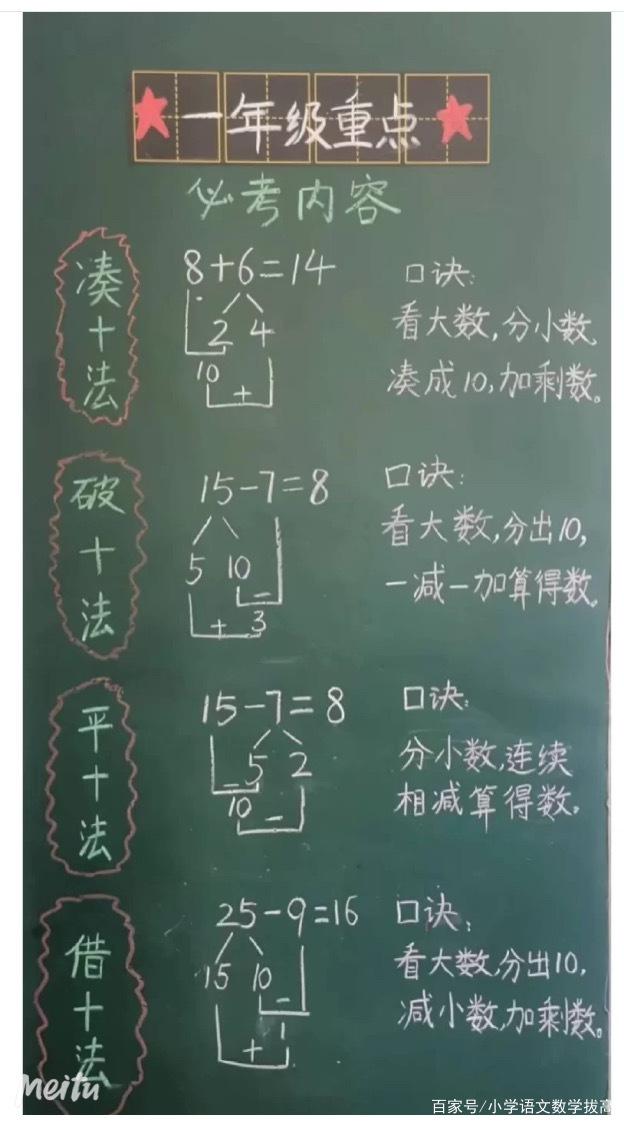 一年级重点
必考内容
凑十法
8+6=14
2 4
10
+
口诀:
看大数,分小数,
凑成10,加剩数。
破十法
15-7=8
5 10
-
+ 3
口诀:
看大数,分出10,
一减一加算得数。
平十法
15-7=8
- 5 2
10
-
口诀:
分小数,连续
相减算得数。
借十法
25-9=16
15 10
-
1
+
口诀:
看大数,分出10,
减小数,加剩数。
Meitu
百家号/小学语文数学拔高